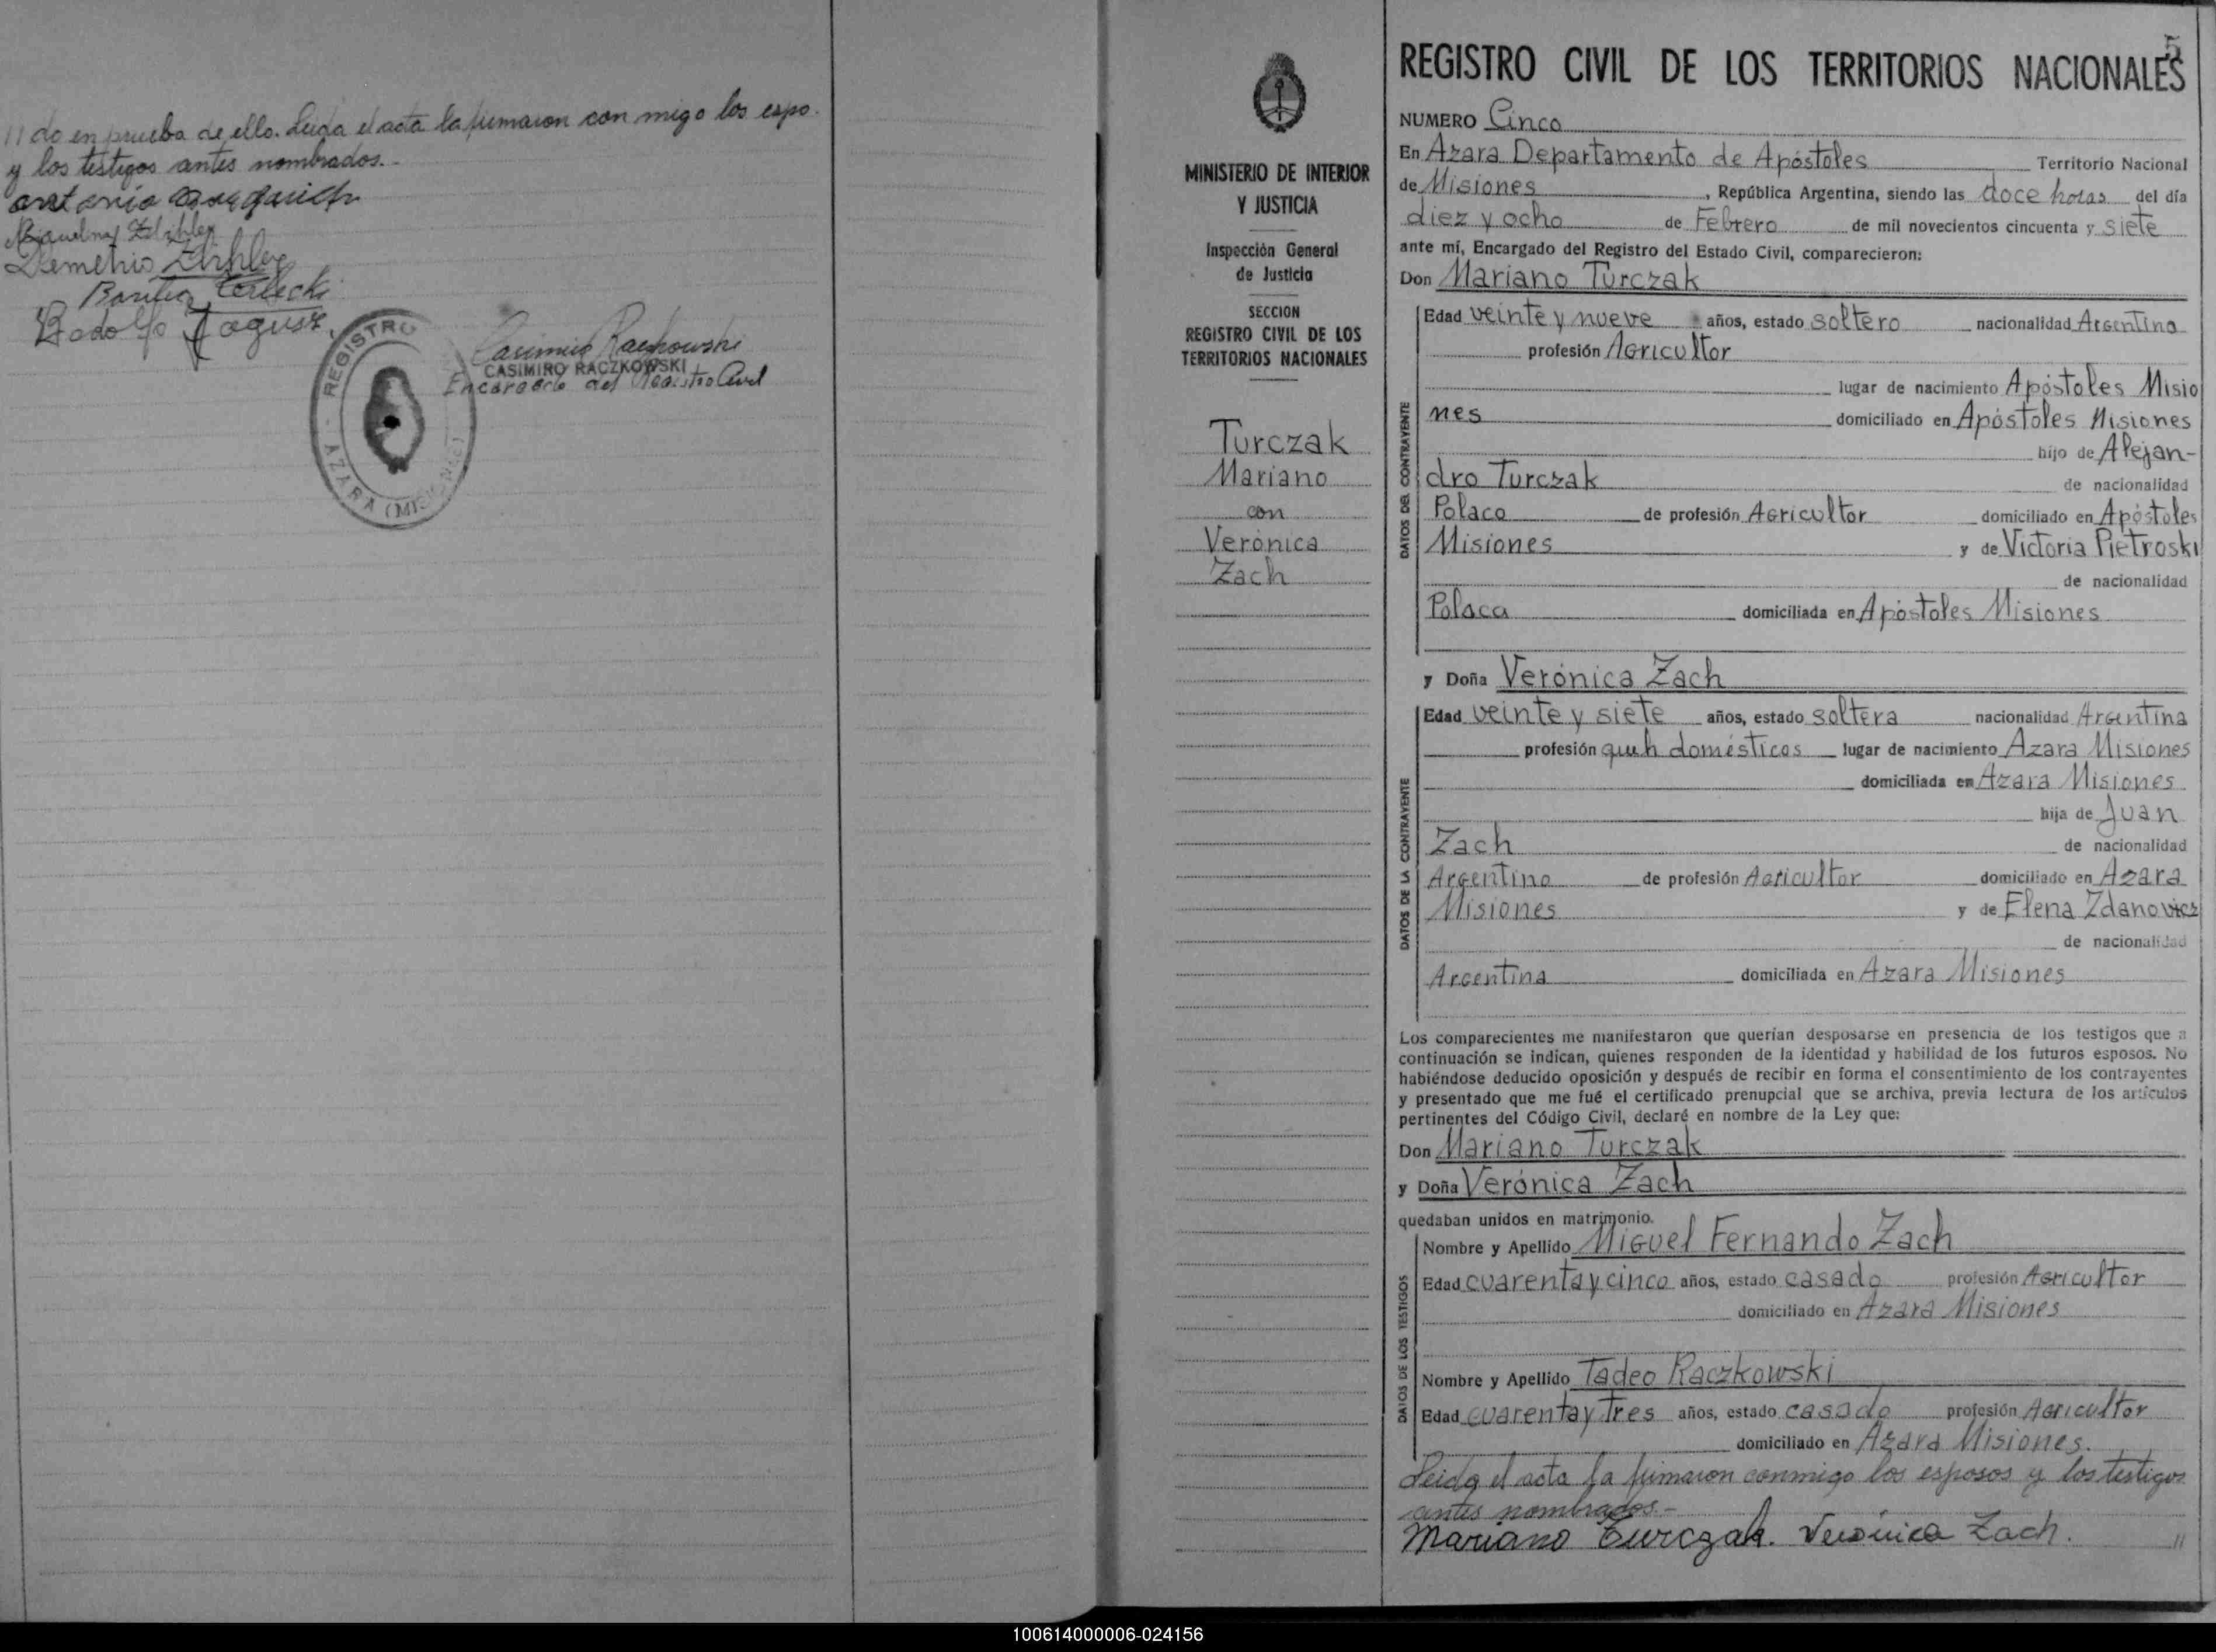 // do en prueba de ello. Leida el acta la firmaron con migo los espo-
y los testigos antes nombrados.-
Antonio
Demetrio
Rodolfo Jagusz
REGISTRO
AZARA (MISIONES)
Casimiro Raczkowski
CASIMIRO RACZKOWSKI
Encargado del Registro Civil
MINISTERIO DE INTERIOR
Y JUSTICIA
Inspección General
de Justicia
SECCION
REGISTRO CIVIL DE LOS
TERRITORIOS NACIONALES
Turczak
Mariano
con
Verónica
Zach
5
REGISTRO CIVIL DE LOS TERRITORIOS NACIONALES
NUMERO Cinco
En Azara Departamento de Apóstoles Territorio Nacional
de Misiones, República Argentina, siendo las doce horas del día
diez y ocho de Febrero de mil novecientos cincuenta y siete
ante mí, Encargado del Registro del Estado Civil, comparecieron:
Don Mariano Turczak
DATOS DEL CONTRAYENTE
Edad veinte y nueve años, estado soltero nacionalidad Argentino
profesión Agricultor
lugar de nacimiento Apóstoles Misio
nes domiciliado en Apóstoles Misiones
hijo de Alejan-
dro Turczak de nacionalidad
Polaco de profesión Agricultor domiciliado en Apóstoles
Misiones y de Victoria Pietroski
de nacionalidad
Polaca domiciliada en Apóstoles Misiones
y Doña Verónica Zach
DATOS DE LA CONTRAYENTE
Edad veinte y siete años, estado soltera nacionalidad Argentina
profesión queh domésticos lugar de nacimiento Azara Misiones
domiciliada en Azara Misiones
hija de Juan
Zach de nacionalidad
Argentino de profesión Agricultor domiciliado en Azara
Misiones y de Elena Zdanovicz
de nacionalidad
Argentina domiciliada en Azara Misiones
Los comparecientes me manifestaron que querían desposarse en presencia de los testigos que a
continuación se indican, quienes responden de la identidad y habilidad de los futuros esposos. No
habiéndose deducido oposición y después de recibir en forma el consentimiento de los contrayentes
y presentado que me fué el certificado prenupcial que se archiva, previa lectura de los artículos
pertinentes del Código Civil, declaré en nombre de la Ley que:
Don Mariano Turczak
y Doña Verónica Zach
quedaban unidos en matrimonio.
DATOS DE LOS TESTIGOS
Nombre y Apellido Miguel Fernando Zach
Edad cuarenta y cinco años, estado casado profesión Agricultor
domiciliado en Azara Misiones
Nombre y Apellido Tadeo Raczkowski
Edad cuarenta y tres años, estado casado profesión Agricultor
domiciliado en Azara Misiones.
Leida el acta la firmaron conmigo los esposos y los testigos
antes nombrados.-
Mariano Turczak. Verónica Zach. //
100614000006-024156